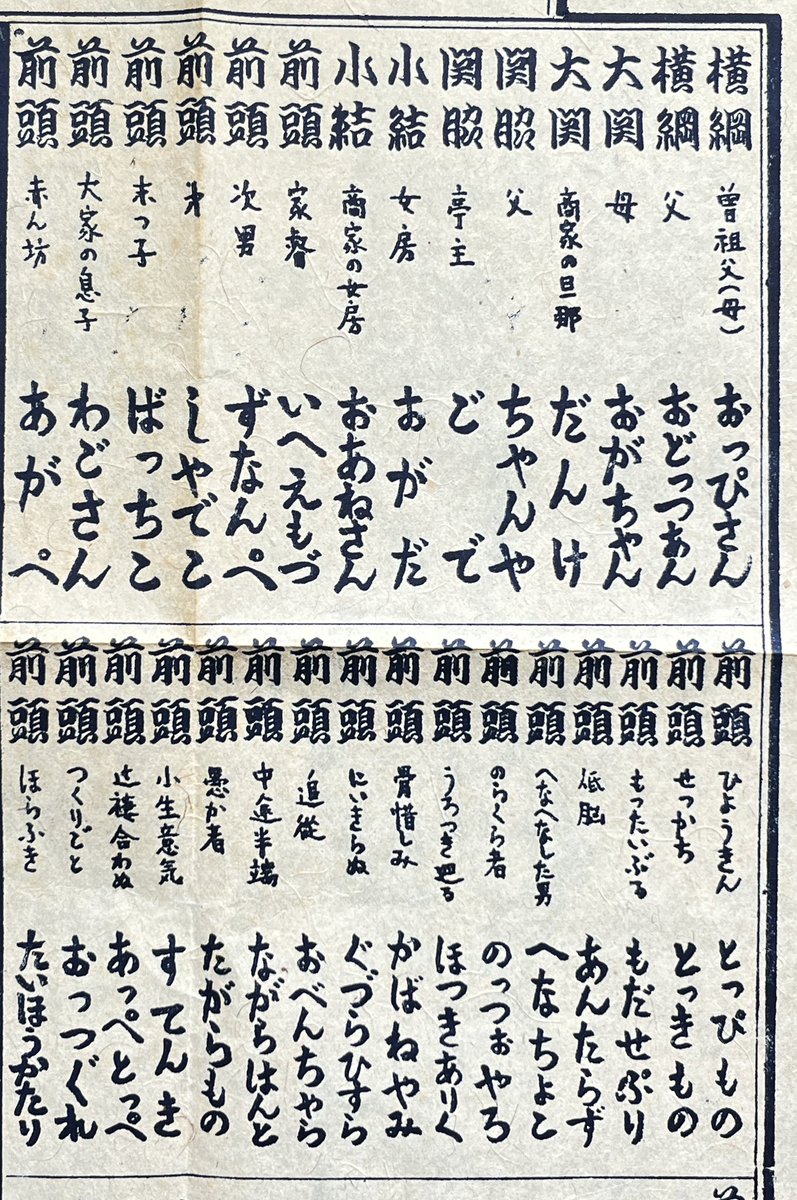 横綱 曽祖父(母) おっぴさん
横綱 父 おどっつあん
大関 母 おがちゃん
大関 商家の旦那 だんけ
関脇 父 ちゃんや
関脇 亭主 ごで
小結 女房 おがだ
小結 商家の女房 おあねさん
前頭 家督 いへえもづ
前頭 次男 ずなんぺ
前頭 弟 しやでこ
前頭 末っ子 ばっちこ
前頭 大家の息子 わごさん
前頭 赤ん坊 あがぺ
前頭 ひょうきん とっぴもの
前頭 せっかち とっきもの
前頭 もったいぶる もだせぷり
前頭 低脳 あんたらず
前頭 へなへなした男 へなちょこ
前頭 のらくら者 のっつぉやろ
前頭 うろつき廻る ほつきありく
前頭 骨惜しみ かばねやみ
前頭 にいきらぬ ぐづらひすら
前頭 追従 おべんちゃら
前頭 中途半端 ながらはんと
前頭 愚か者 たがらもの
前頭 小生意気 すてんき
前頭 辻褄合わぬ あっぺとっぺ
前頭 つくりごと おっつぐれ
前頭 ほらふき たいほうかたり